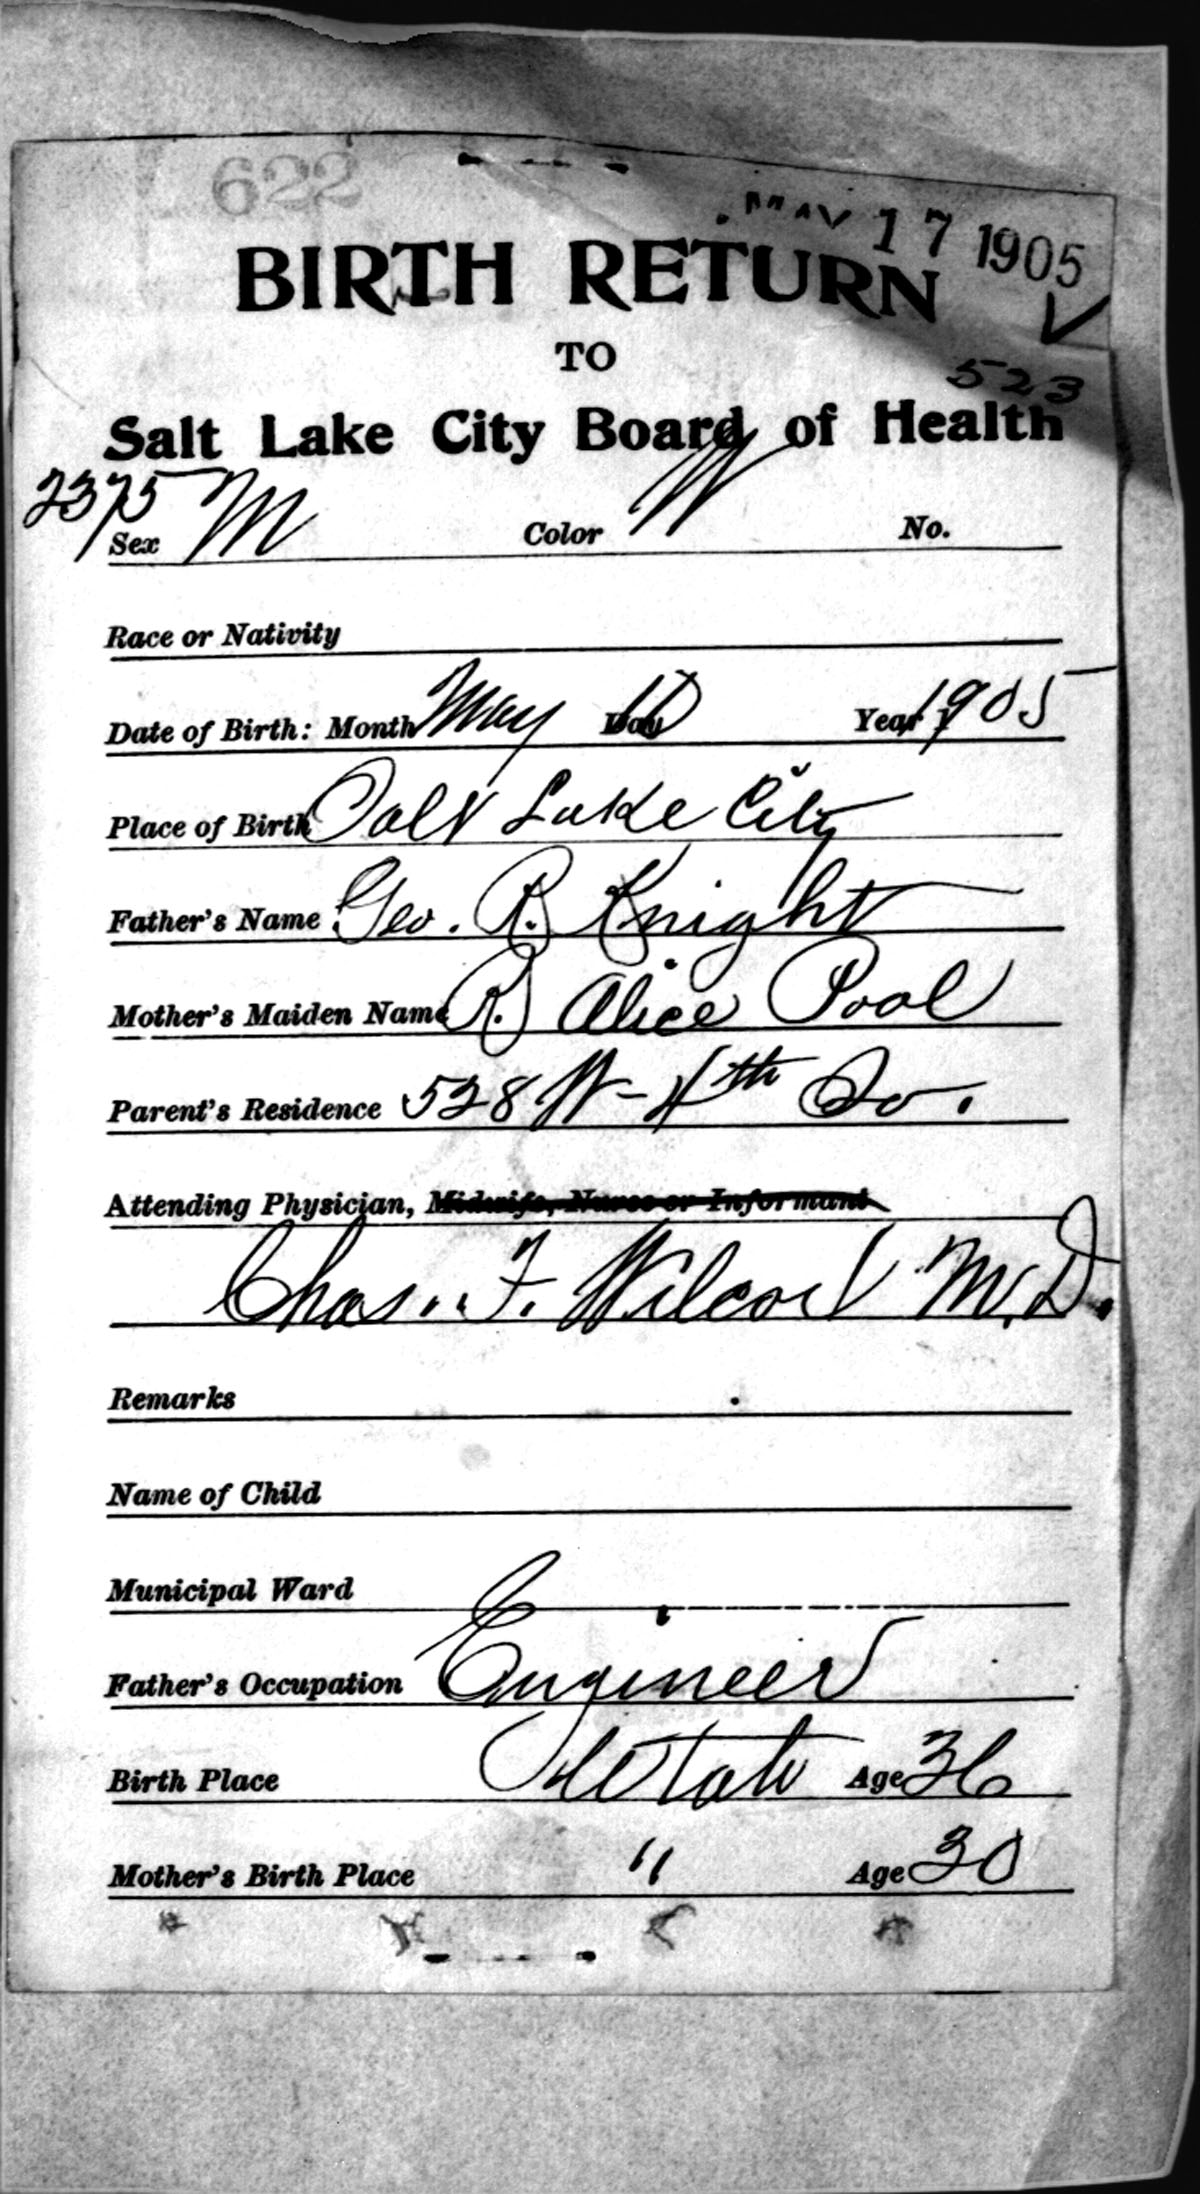 622
MAY 17 1905
BIRTH RETURN
TO
523
Salt Lake City Board of Health
2375
Sex M Color W No.
Race or Nativity
Date of Birth: Month May Day 10 Year 1905
Place of Birth Salt Lake City
Father's Name Geo. R. Knight
Mother's Maiden Name R. Alice Pool
Parent's Residence 528 W-4th So.
Attending Physician, Midwife, Nurse or Informant
Chas. F. Wilcox M.D.
Remarks
Name of Child
Municipal Ward
Father's Occupation Engineer
Birth Place Utah Age 36
Mother's Birth Place " Age 30